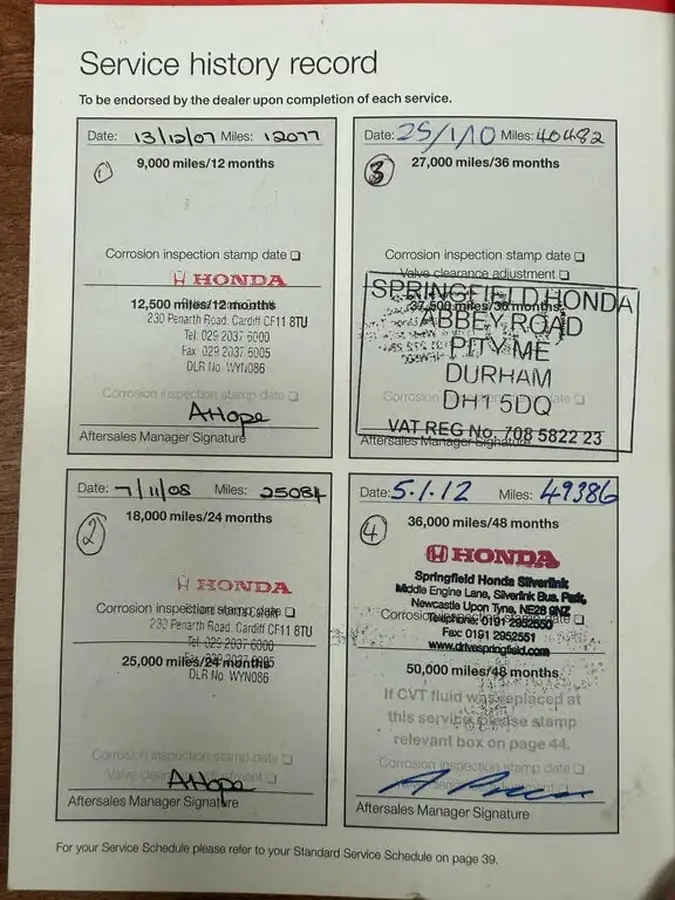 Service history record
To be endorsed by the dealer upon completion of each service.
Date: 13/12/07 Miles: 12077
1
9,000 miles/12 months
Corrosion inspection stamp date
HONDA
12,500 miles/12 months
230 Penarth Road. Cardiff CF11 8TU
Tel: 029 2037 6000
Fax: 029 2037 6005
DLR No. WYN086
Corrosion inspection stamp date
AHope
Aftersales Manager Signature
Date: 25/1/10 Miles: 40482
3
27,000 miles/36 months
Corrosion inspection stamp date
Valve clearance adjustment
SPRINGFIELD HONDA
37,500 miles/36 months
ABBEY ROAD
PITY ME
DURHAM
DH1 5DQ
Corrosion date
VAT REG No. 708 5822 23
Aftersales Manager Signature
Date: 7/11/08 Miles: 25084
2
18,000 miles/24 months
HONDA
Corrosion inspection stamp date
230 Penarth Road. Cardiff CF11 8TU
Tel: 029 2037 6000
25,000 miles/24 months
DLR No. WYN086
Corrosion inspection stamp date
Valve clearance adjustment
AHope
Aftersales Manager Signature
Date: 5.1.12 Miles: 49386
4
36,000 miles/48 months
HONDA
Springfield Honda Silverlink
Middle Engine Lane, Silverlink Bus. Park,
Newcastle Upon Tyne, NE28 9NZ
Corrosion date
Telephone: 0191 2952550
Fax: 0191 2952551
www.drivespringfield.com
50,000 miles/48 months
If CVT fluid was replaced at
this service, please stamp
relevant box on page 44.
Corrosion inspection stamp date
Aftersales Manager Signature
For your Service Schedule please refer to your Standard Service Schedule on page 39.